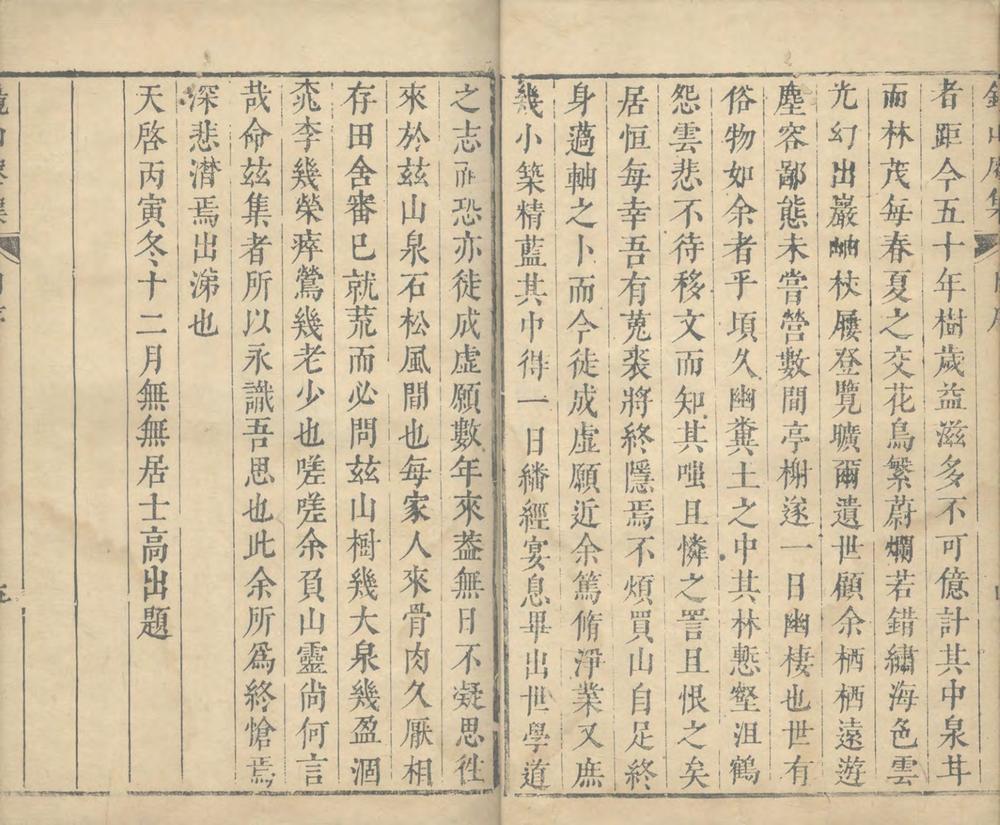 者距今五十年樹歲益滋多不可億計其中泉甘
而林茂每春夏之交花鳥繁蔚爛若錯繡海色雲
光幻出巖岫杖屨登覽曠爾遺世顧余栖栖遠遊
塵容鄙態未嘗營數間亭榭遂一日幽棲也世有
俗物如余者乎頃久幽糞土之中其林慙壑沮鶴
怨雲悲不待移文而知其嗤且憐之詈且恨之矣
居恒每幸吾有菟裘將終隱焉不煩買山自足終
身薖軸之卜而今徒成虛願近余篤脩淨業又庶
幾小築精藍其中得一日繙經宴息畢出世學道
之志而恐亦徒成虛願數年來葢無日不凝思徃
來於兹山泉石松風間也每家人來骨肉久厭相
存田舍審已就荒而必問兹山樹幾大泉幾盈涸
桃李幾榮瘁鶯幾老少也嗟嗟余負山靈尚何言
哉命兹集者所以永識吾思也此余所爲終愴焉
深悲潸焉出涕也
天啓丙寅冬十二月無無居士高出題